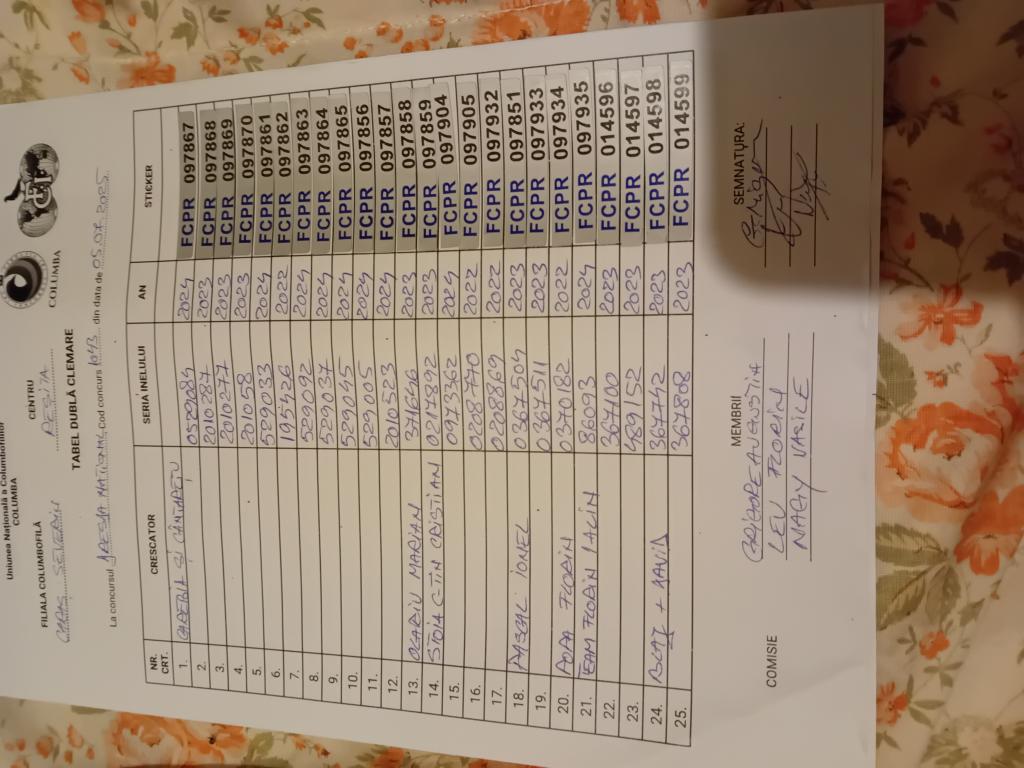 Uniunea Națională a Columbofililor
COLUMBA
COLUMBA
FILIALA COLUMBOFILĂ
CARAȘ SEVERIN
CENTRU
REȘIȚA
TABEL DUBLĂ CLEMARE
La concursul NAȚIONAL cod concurs din data de 05.07.2025
NR. CRT. CRESCATOR SERIA INELULUI AN STICKER
1. GHERGINA ȘI CÂNTĂREȚU 0529084 2024 FCPR 097867
2. 2010287 2023 FCPR 097868
3. 2010277 2023 FCPR 097869
4. 201058 2023 FCPR 097870
5. 529033 2024 FCPR 097861
6. 195426 2022 FCPR 097862
7. 529092 2024 FCPR 097863
8. 529037 2024 FCPR 097864
9. 529045 2024 FCPR 097865
10. 529005 2024 FCPR 097856
11. 2010523 2024 FCPR 097857
12. 3716716 2023 FCPR 097858
13. MARIAN 0217892 2023 FCPR 097859
14. STOIA C-TIN CRISTIAN 0973362 2024 FCPR 097904
15. 0288770 2022 FCPR 097905
16. 0288869 2022 FCPR 097932
17. 0367504 2023 FCPR 097851
18. PASCAL IONEL 0367511 2023 FCPR 097933
19. 0370182 2022 FCPR 097934
20. POPA FLORIN 86093 2024 FCPR 097935
21. TEAM FLORIN 367100 2023 FCPR 014596
22. 489152 2023 FCPR 014597
23. 36742 2023 FCPR 014598
24. 367808 2023 FCPR 014599
25.
COMISIE
MEMBRII
SEMNATURA:
LEU FLORIN
NAGY VASILE